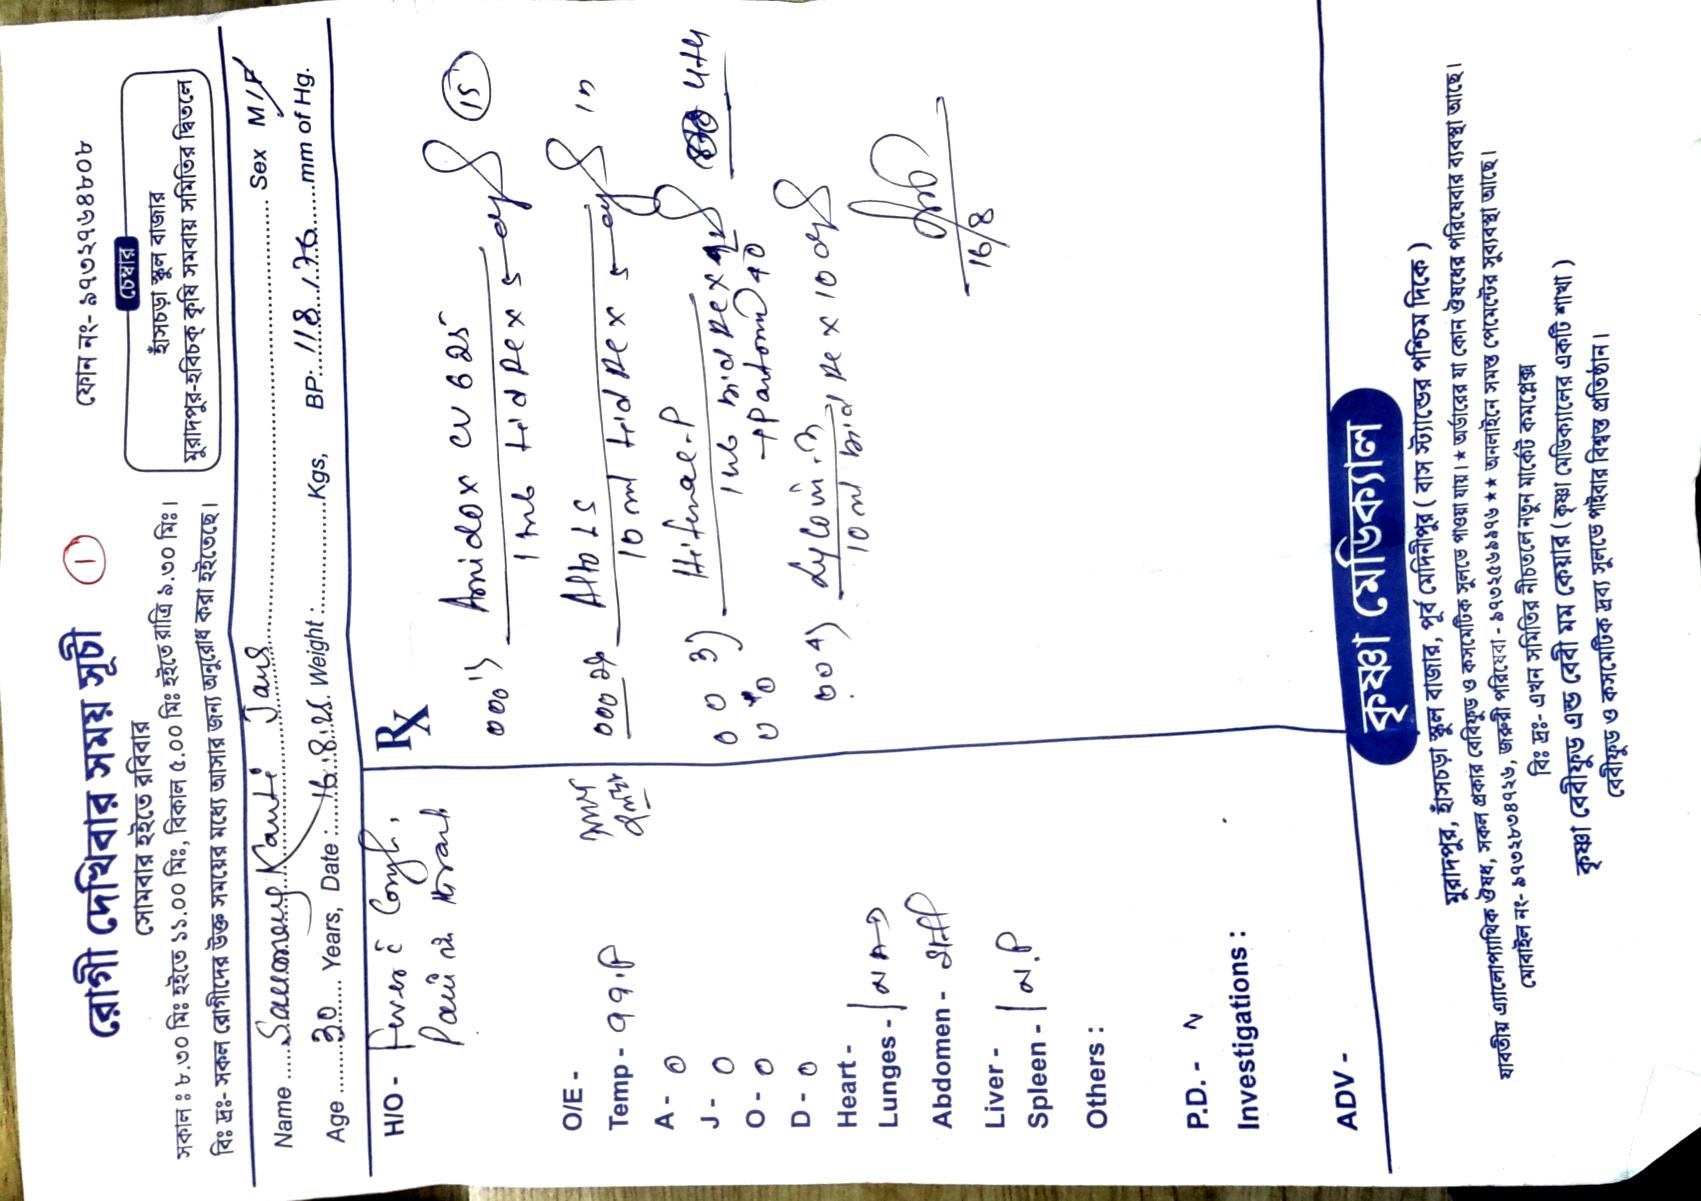 রোগী দেখিবার সময় সূচী
1
ফোন নং- ৯৭৩২৭৬৪৮০৮
সোমবার হইতে রবিবার
সকাল : ৮.৩০ মিঃ হইতে ১১.০০ মিঃ, বিকাল ৫.০০ মিঃ হইতে রাত্রি ৯.৩০ মিঃ।
বিঃ দ্রঃ- সকল রোগীদের উক্ত সময়ের মধ্যে আসার জন্য অনুরোধ করা হইতেছে।
চেম্বার
হাঁসচড়া স্কুল বাজার
মুরাদপুর-হরিচক্ কৃষি সমবায় সমিতির দ্বিতলে
Name Kanti Jana Sex M/F
Age 30 Years, Date : 16.8.25 Weight : Kgs, BP: 118/76 mm of Hg.
H/O - Fever c Cough,
Pain in throat
O/E -
Temp - 99.F
A - 0
J - 0
O - 0
D - 0
Heart -
Lunges -
Abdomen -
Liver -
Spleen -
Others :
P.D. - N
Investigations :
ADV -
Rx
000 1) Amidox CV 625
1 tab tid pc x 5 days 15
000 2) Alto LS
10 ml tid pc x 5 days
0 0 3) Hifenac-P
1 tab bid pc x
→ Pantonic 40
00 4) Lycovin-M
10 ml bid pc x 10 days
16/8
কৃষ্ণা মেডিক্যাল
মুরাদপুর, হাঁসচড়া স্কুল বাজার, পূর্ব মেদিনীপুর ( বাস স্ট্যান্ডের পশ্চিম দিকে )
যাবতীয় এ্যালোপ্যাথিক ঔষধ, সকল প্রকার বেবিফুড ও কসমেটিক সুলভে পাওয়া যায়। ★ অর্ডারের যা কোন ঔষধের পরিষেবার ব্যবস্থা আছে।
মোবাইল নং- ৯৭৩২৮৩৪৭২৬, জরুরী পরিষেবা - ৯৭৩২৫৬৯৯৭৬ ★★ অনলাইনে সমস্ত পেমেন্টের সুব্যবস্থা আছে।
বিঃ দ্রঃ- এখন সমিতির নীচতলে নতুন মার্কেট কমপ্লেক্স
কৃষ্ণা বেবীফুড এন্ড বেবী মম কেয়ার ( কৃষ্ণা মেডিক্যালের একটি শাখা )
বেবীফুড ও কসমেটিক দ্রব্য সুলভে পাইবার বিশ্বস্ত প্রতিষ্ঠান।